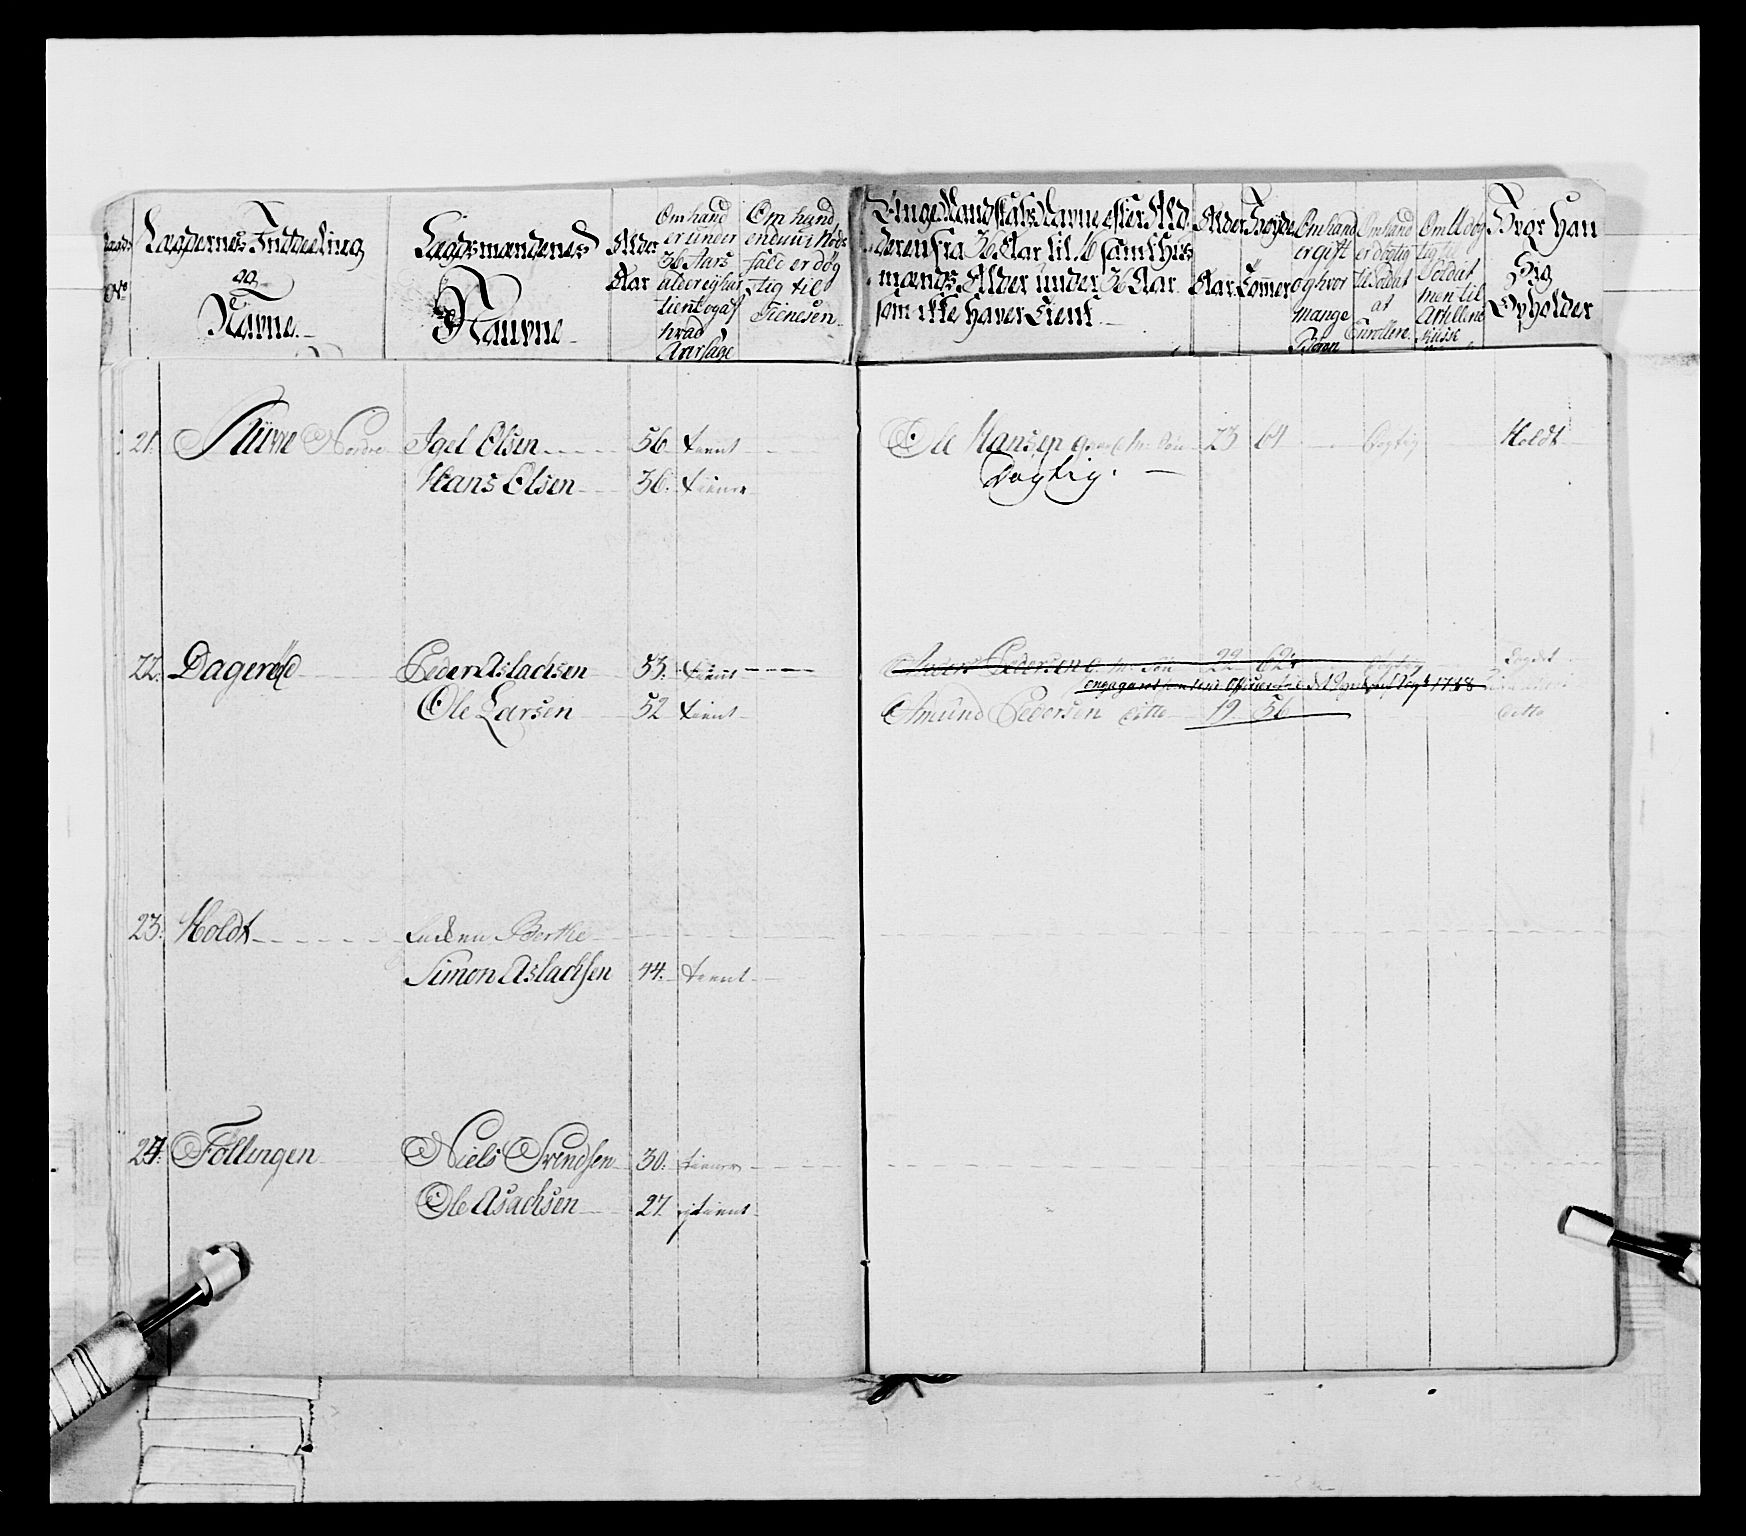 Lægdernes Indeeling
og
Navne
Lægdsmændenes
Naune
Alder
Aar
Om hand
er under
36 Aars
alder ej har
tient og af
hvad
Aarsage
Om hand
endnu i Nøds
fald er døg
tig til
Tienesen
Unge Mandskabs Navne efter Al
deren fra 36 Aar til 16 samt Huus
mænds Alder under 36 Aar
som ikke haver tient
Alder
Aar
Høyde
Tommer
Om hand
er gift
og hvor
mange
Børn
Om hand
er dygtig
til Soldat
at
Enrollere
Om U døg
tig til
Soldat
men til
Artillerie
Hvor Han
Sig
Opholder
21. Nordre Jgel Olsen 56 tient Ole Hansen 23 64 Døgtig Holdt
Hans Olsen 36. tiener Døgtig.
22. Dagerød Peder Aslachsen 53. tient Peders Pedersen 22 62
1788
Ole Larsen 52 tient Amund Pedersen ditto 19 56 ditto
23. Holdt Enken Berthe
Simon Aslachsen 44. tient
24. Föllingen Niels Svendsen 30. tiener
Ole Asachsen 27. ej tient